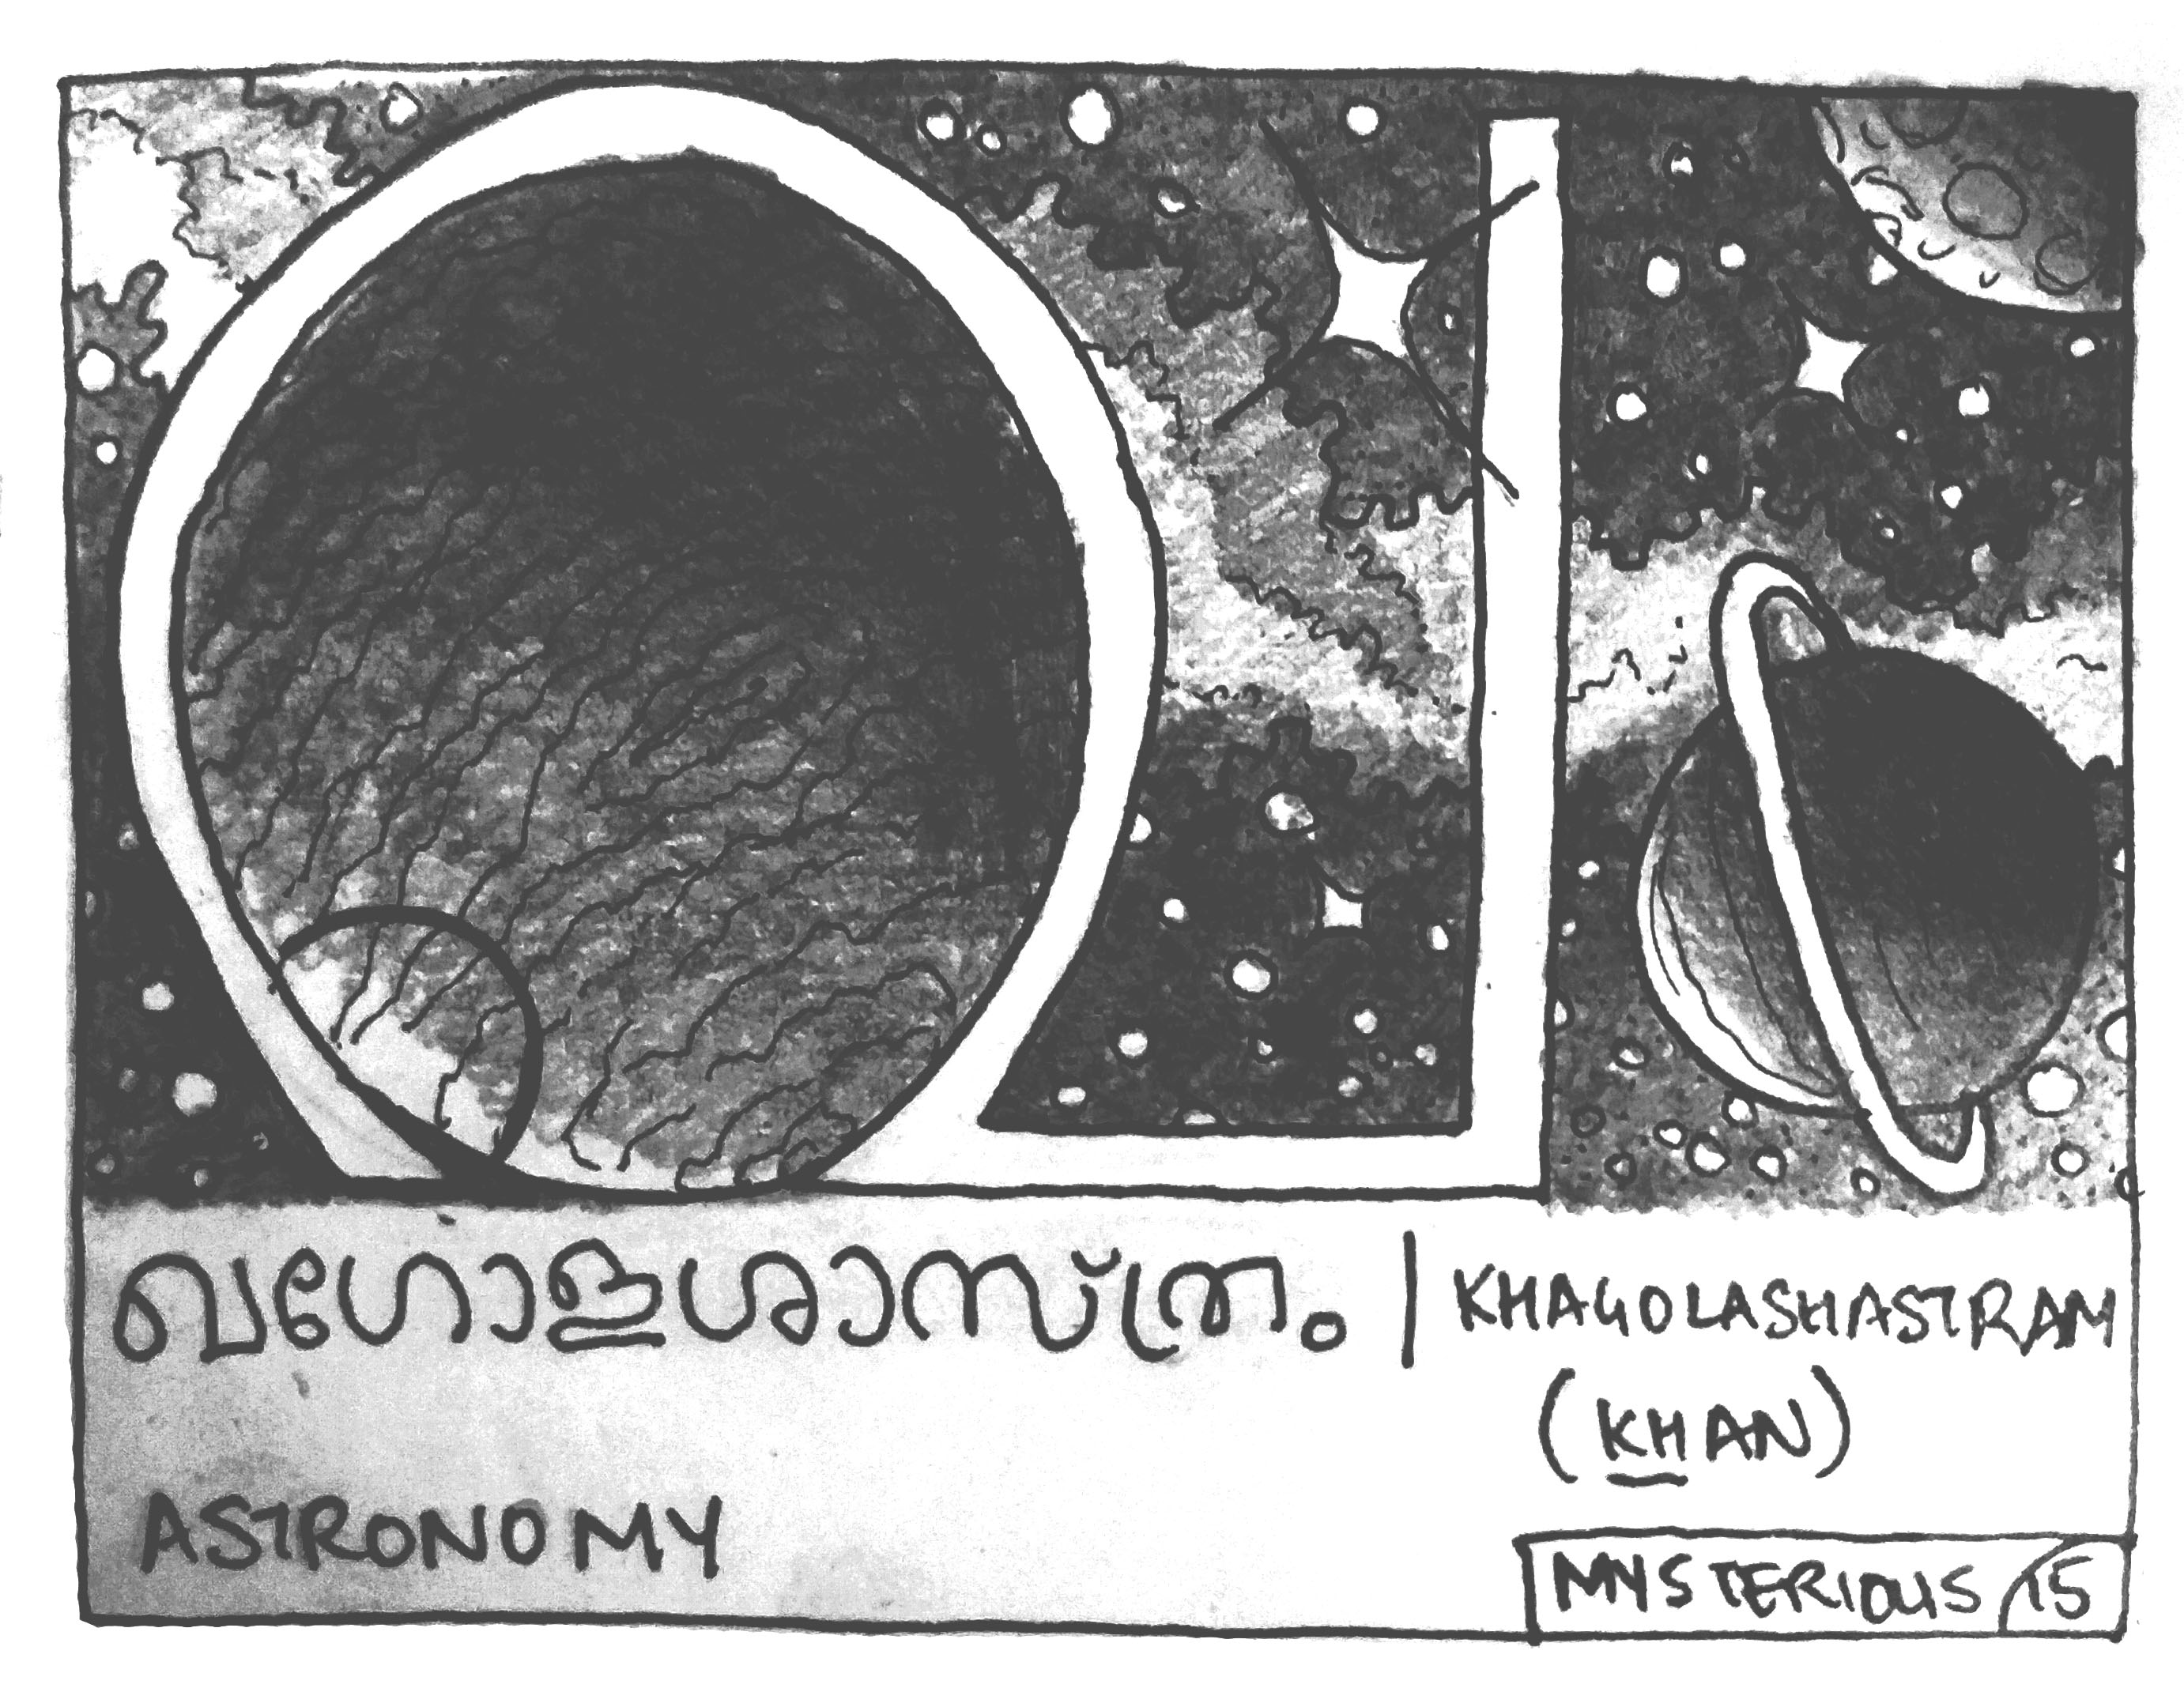 ഖ
ഖഗോളശാസ്ത്രം | KHAGOLASHASTRAM
(KHAN)
ASTRONOMY
MYSTERIOUS 15